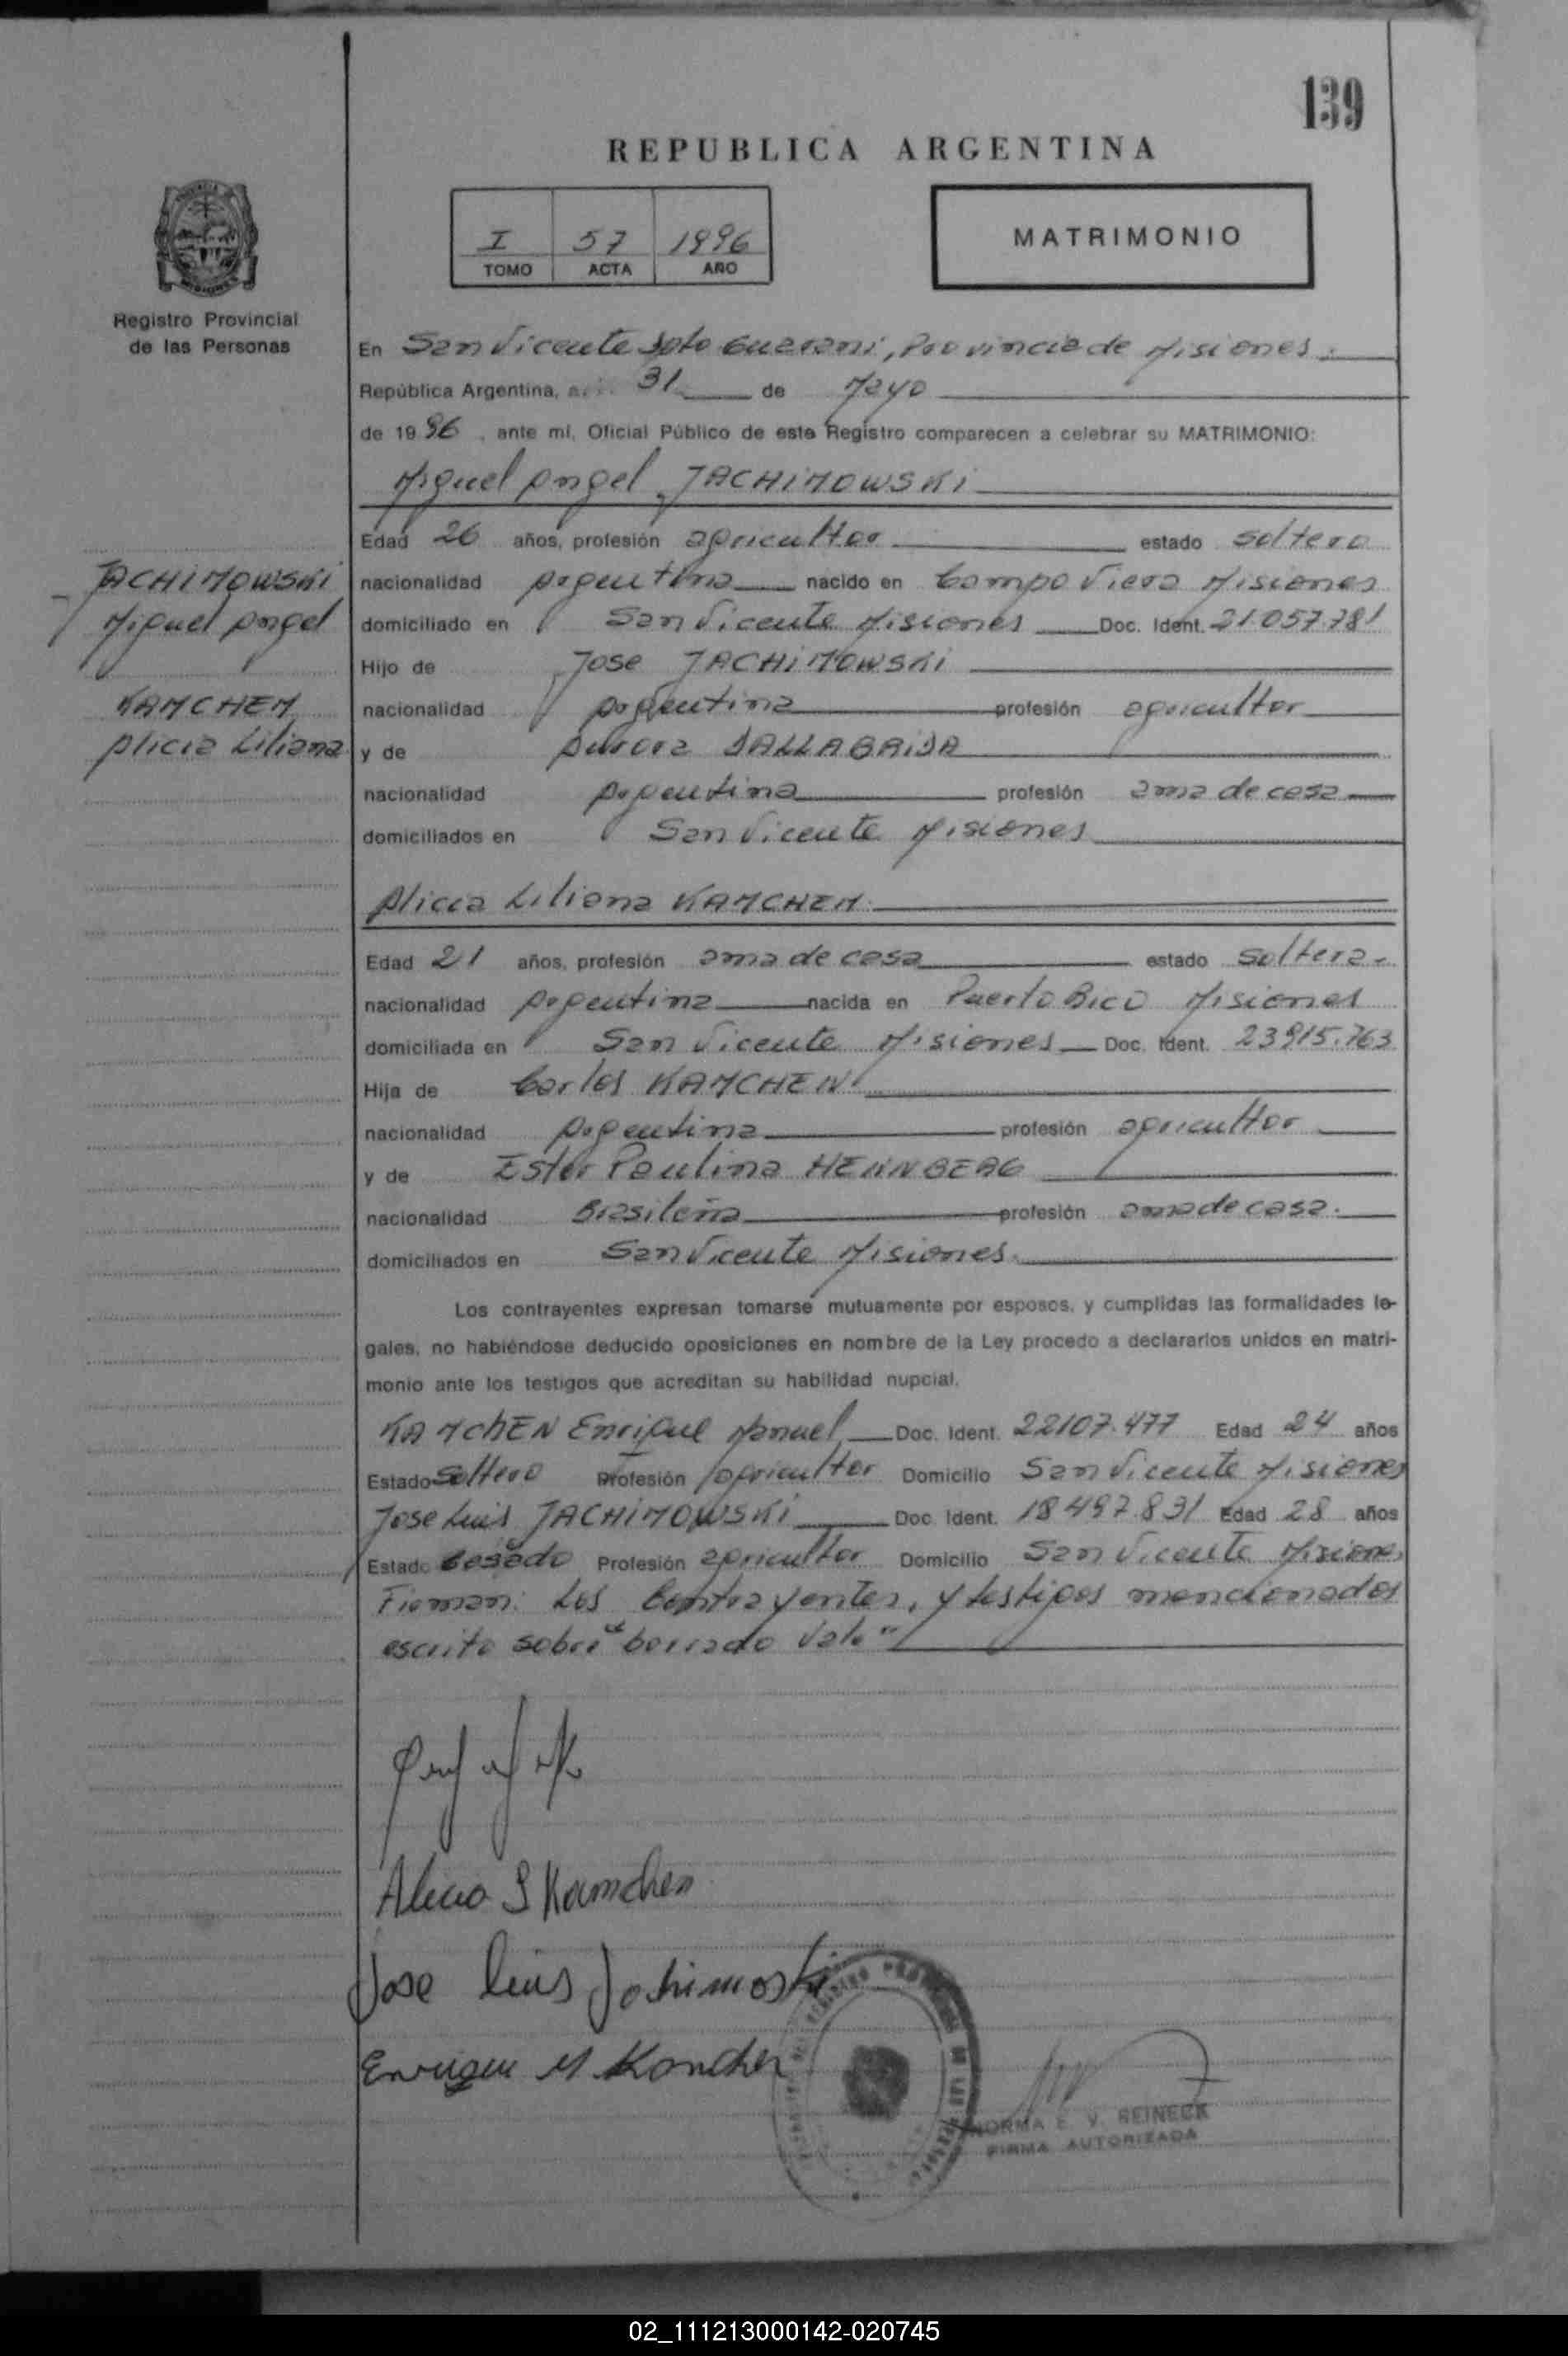 139
REPUBLICA ARGENTINA
I 57 1996
TOMO ACTA AÑO
MATRIMONIO
Registro Provincial
de las Personas
En San Vicente Dpto Guarani, Provincia de Misiones.
República Argentina, a 31 de Mayo
de 1996, ante mí, Oficial Público de este Registro comparecen a celebrar su MATRIMONIO:
Miguel Angel JACHIMOWSKI
Edad 26 años, profesión agricultor estado soltero
JACHIMOWSKI
Miguel Angel
KAMCHEM
Alicia Liliana
nacionalidad Argentina nacido en Campo Viera Misiones
domiciliado en San Vicente Misiones Doc. Ident. 21.057.781
Hijo de Jose JACHIMOWSKI
nacionalidad Argentina profesión agricultor
y de Aurora DALLABRIDA
nacionalidad Argentina profesión ama de casa
domiciliados en San Vicente Misiones
Alicia Liliana KAMCHEM
Edad 21 años, profesión ama de casa estado soltera
nacionalidad Argentina nacida en Puerto Rico Misiones
domiciliada en San Vicente Misiones Doc. Ident. 23915.763
Hija de Carlos KAMCHEN
nacionalidad Argentina profesión agricultor
y de Ester Paulina HENNBERG
nacionalidad Brasileña profesión ama de casa.
domiciliados en San Vicente Misiones.
Los contrayentes expresan tomarse mutuamente por esposos, y cumplidas las formalidades le-
gales, no habiéndose deducido oposiciones en nombre de la Ley procedo a declararlos unidos en matri-
monio ante los testigos que acreditan su habilidad nupcial.
KAMCHEN Enrique Manuel Doc. Ident. 22107.477 Edad 24 años
Estado Soltero Profesión agricultor Domicilio San Vicente Misiones
Jose Luis JACHIMOWSKI Doc. Ident. 18497.831 Edad 28 años
Estado Casado Profesión agricultor Domicilio San Vicente Misiones
Firman: Los Contrayentes, y testigos mencionados
escrito sobre "borrado Vale"
Alicia L Kamchen
Jose luis Jachimoski
Enrique M. Kamchen
NORMA E. V. REINECK
FIRMA AUTORIZADA
02_111213000142-020745